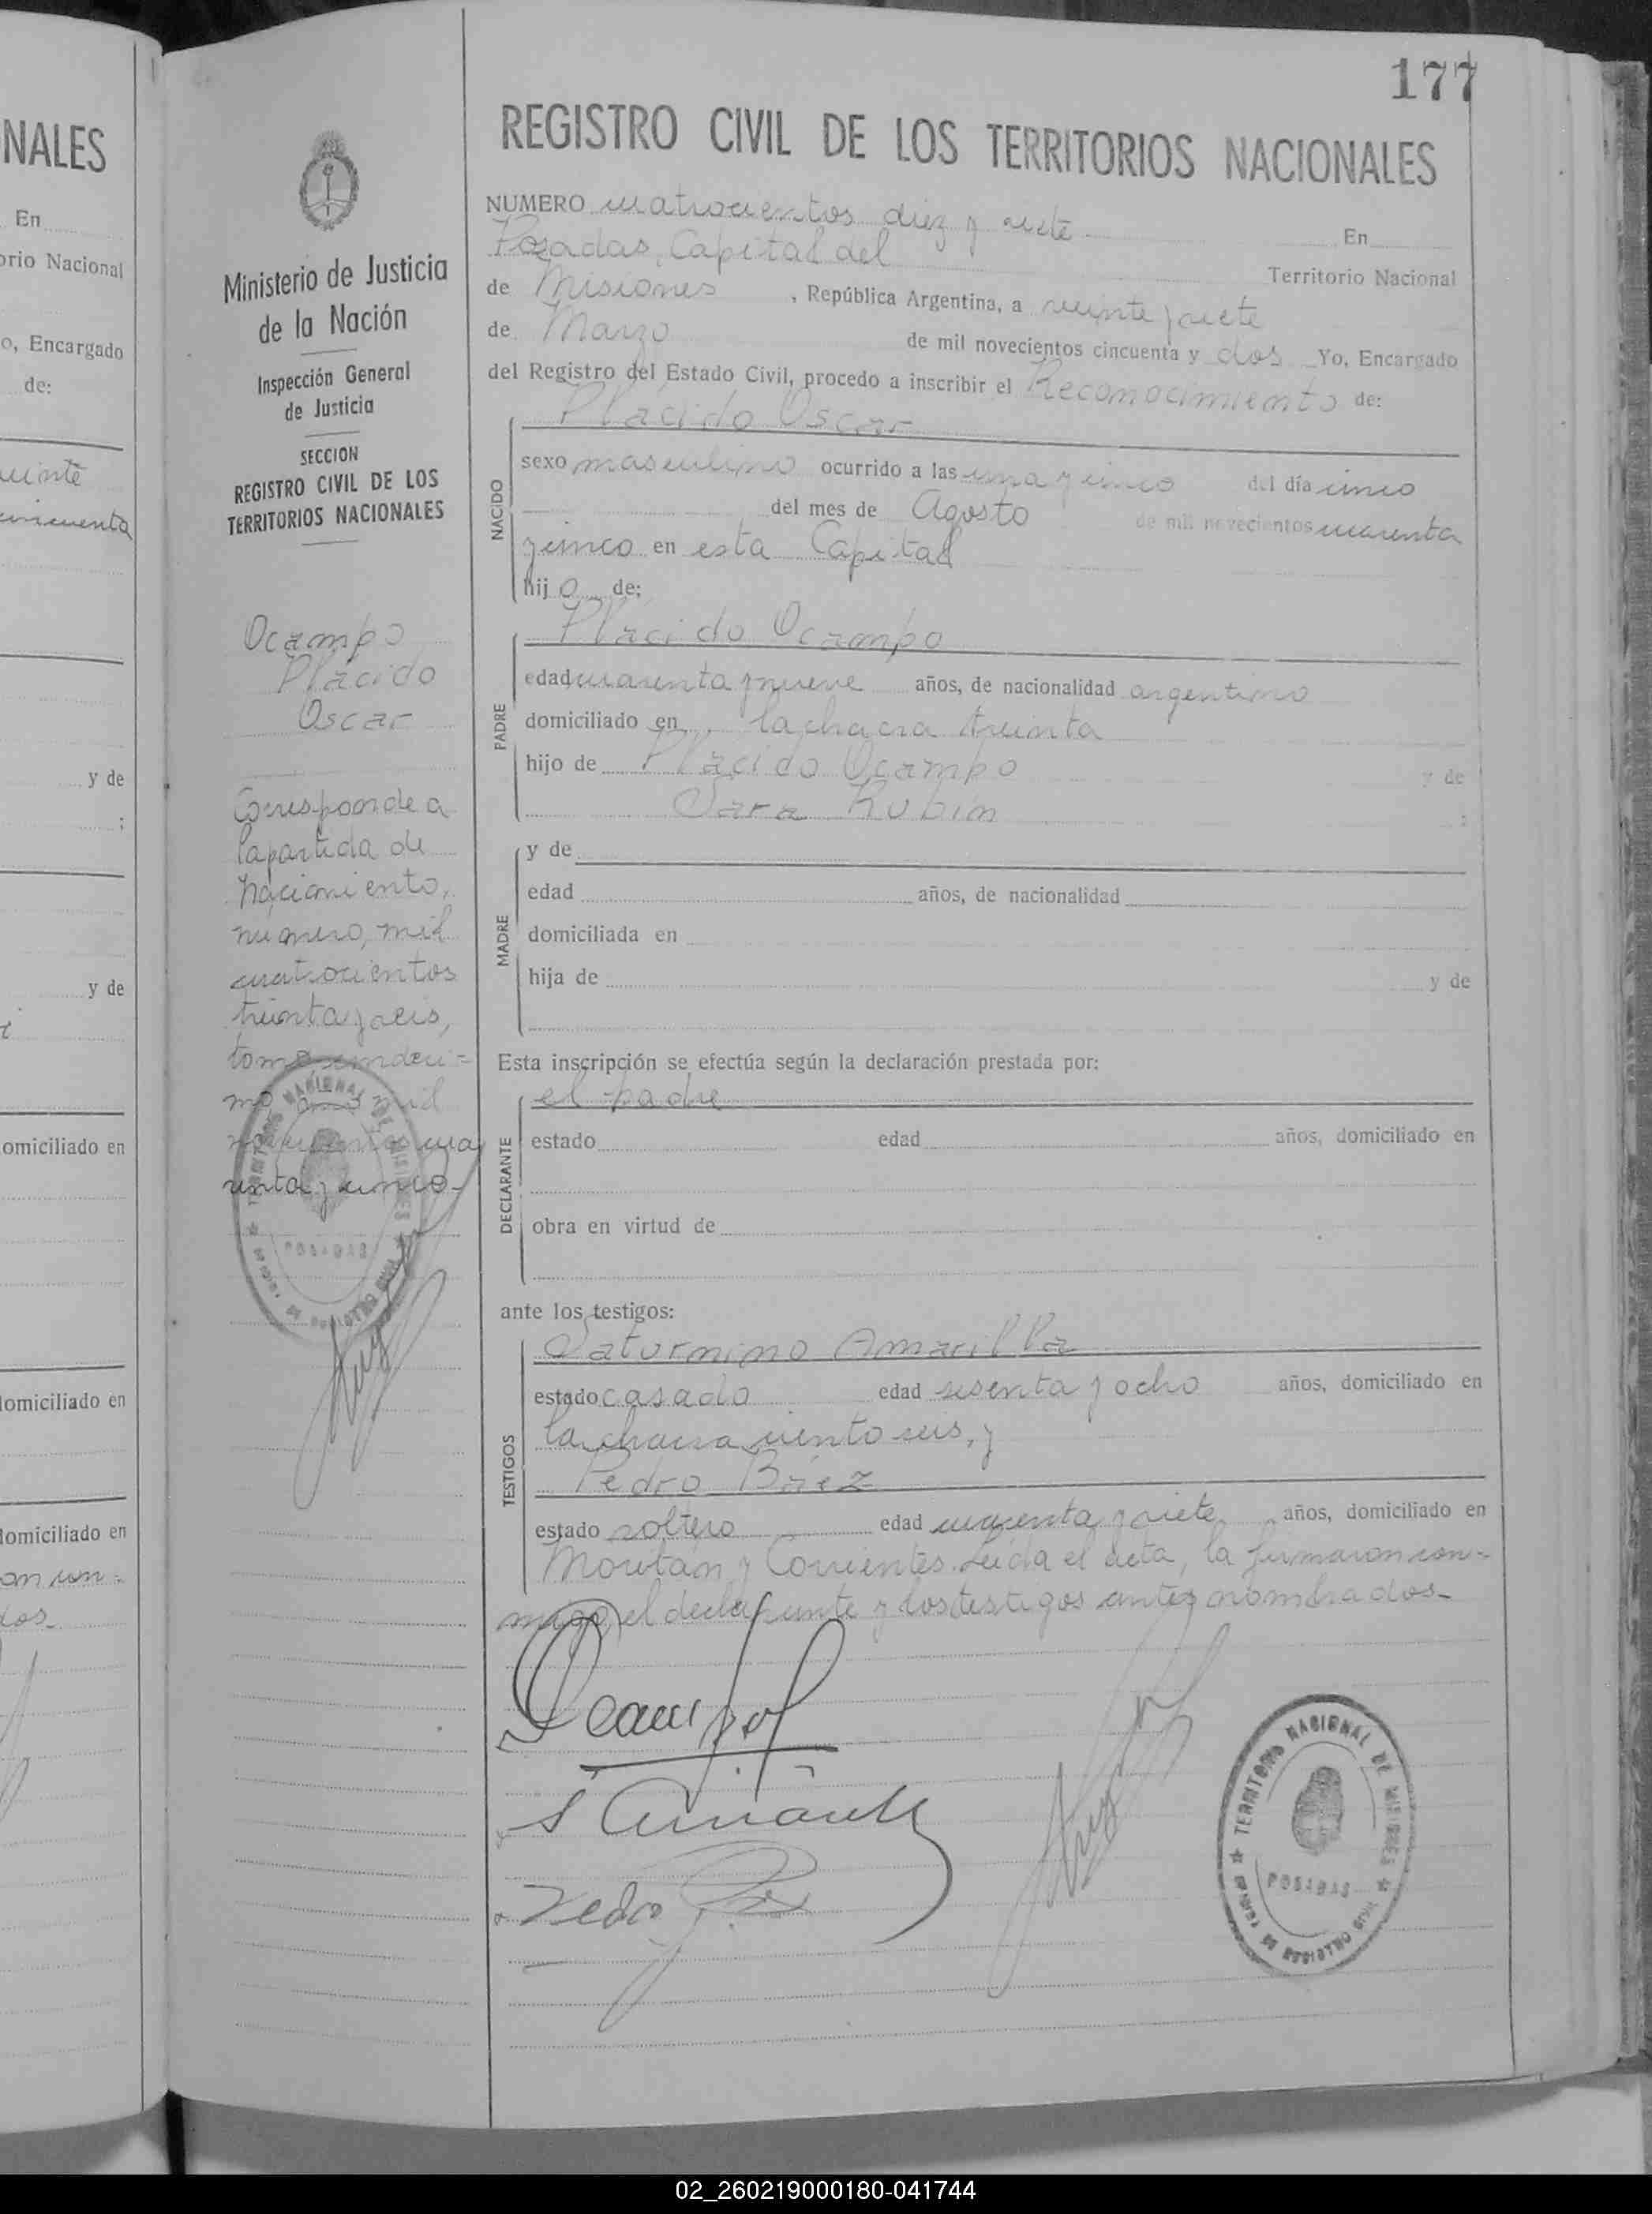 177
NALES
En
orio Nacional
o, Encargado
de:
cincuenta
y de
;
y de
omiciliado en
domiciliado en
domiciliado en
Ministerio de Justicia
de la Nación
Inspección General
de Justicia
SECCION
REGISTRO CIVIL DE LOS
TERRITORIOS NACIONALES
Ocampo
Plácido
Oscar
Corresponde a
la partida de
nacimiento,
numero, mil
cuatrocientos
treinta y seis,
tomo undeci-
mo año mil
novecientos cua
renta y cinco-
REGISTRO CIVIL DE LOS TERRITORIOS NACIONALES
NUMERO cuatrocientos diez y siete En
Posadas, Capital del Territorio Nacional
de Misiones, República Argentina, a veinte y siete
de Marzo de mil novecientos cincuenta y dos Yo, Encargado
del Registro del Estado Civil, procedo a inscribir el Reconocimiento de:
NACIDO
Plácido Oscar
sexo masculino ocurrido a las una y cinco del día cinco
del mes de Agosto de mil novecientos cuarenta
y cinco en esta Capital
hijo de;
PADRE
Plácido Ocampo
edad cuarenta y nueve años, de nacionalidad argentino
domiciliado en la chacra treinta
hijo de Plácido Ocampo y de
Sara Rubin ;
MADRE
y de
edad años, de nacionalidad
domiciliada en
hija de y de
Esta inscripción se efectúa según la declaración prestada por:
DECLARANTE
el padre
estado edad años, domiciliado en
obra en virtud de
ante los testigos:
TESTIGOS
Saturnino Amarilla
estado casado edad sesenta y ocho años, domiciliado en
la chacra ciento seis, y
Pedro Báez
estado soltero edad cuarenta y siete años, domiciliado en
y Corrientes. Leída el acta, la firmaron con-
migo, el declarante y los testigos antes nombrados-
Ocampo
S Amarilla
Pedro
TERRITORIO NACIONAL DE MISIONES
POSADAS
REGISTRO CIVIL
02_260219000180-041744